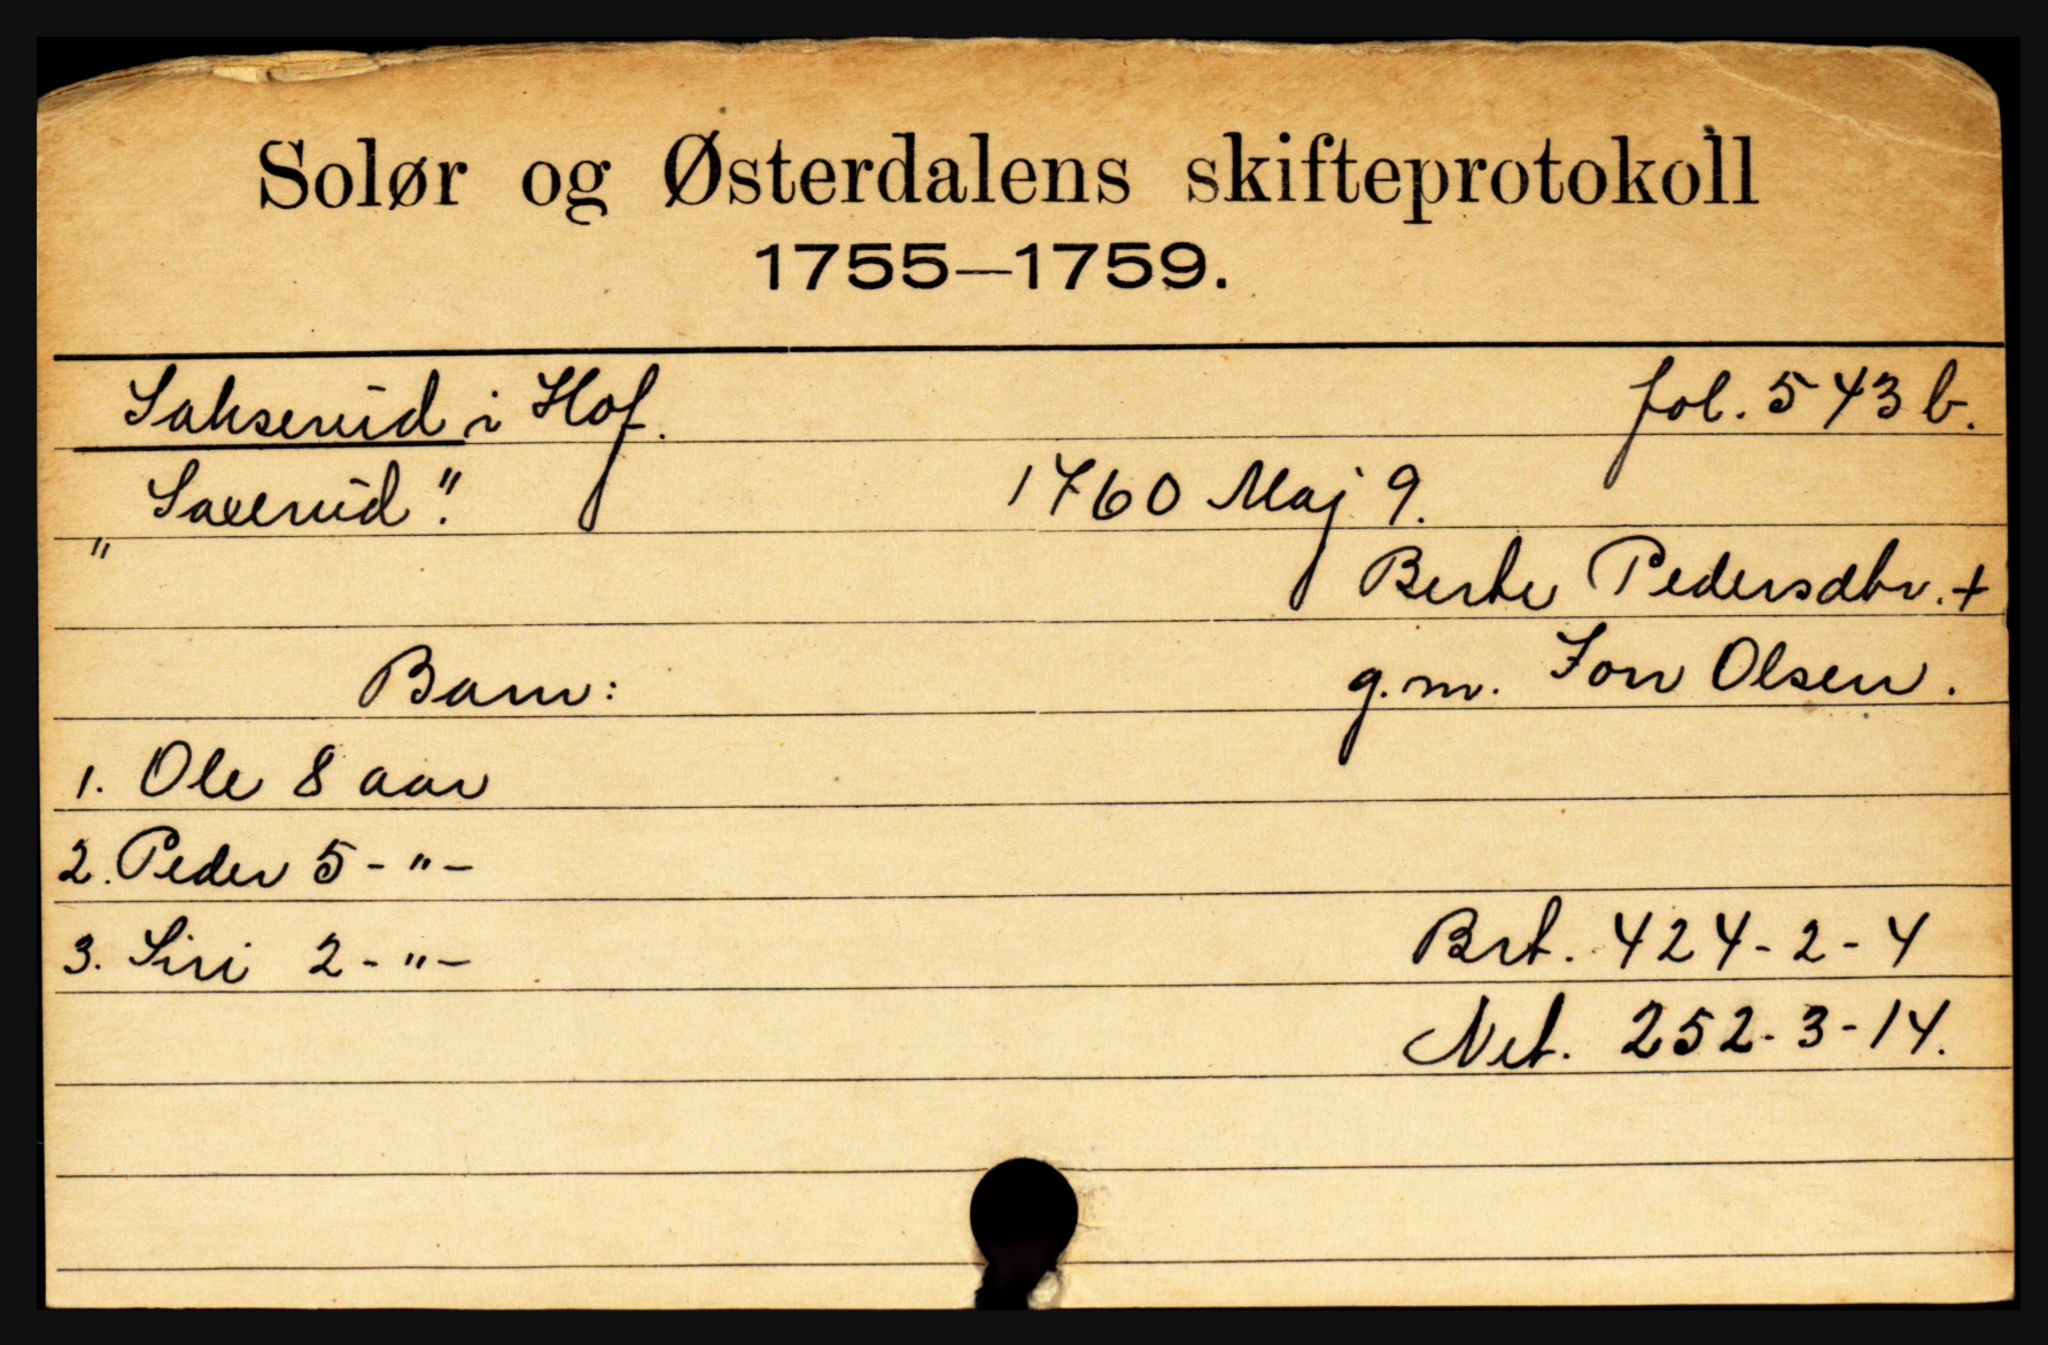 Solør og Østerdalens skifteprotokoll
1755—1759.
Sakserud i Hof. fol. 543 b.
" Saxerud". 1760 Maj 9.
Berte Pedersdtr. +
Barn: g.m. Jon Olsen.
1. Ole 8 aar
2. Peder 5 - " -
3. Siri 2 - " - Brt. 424-2-4
Net. 252-3-14.